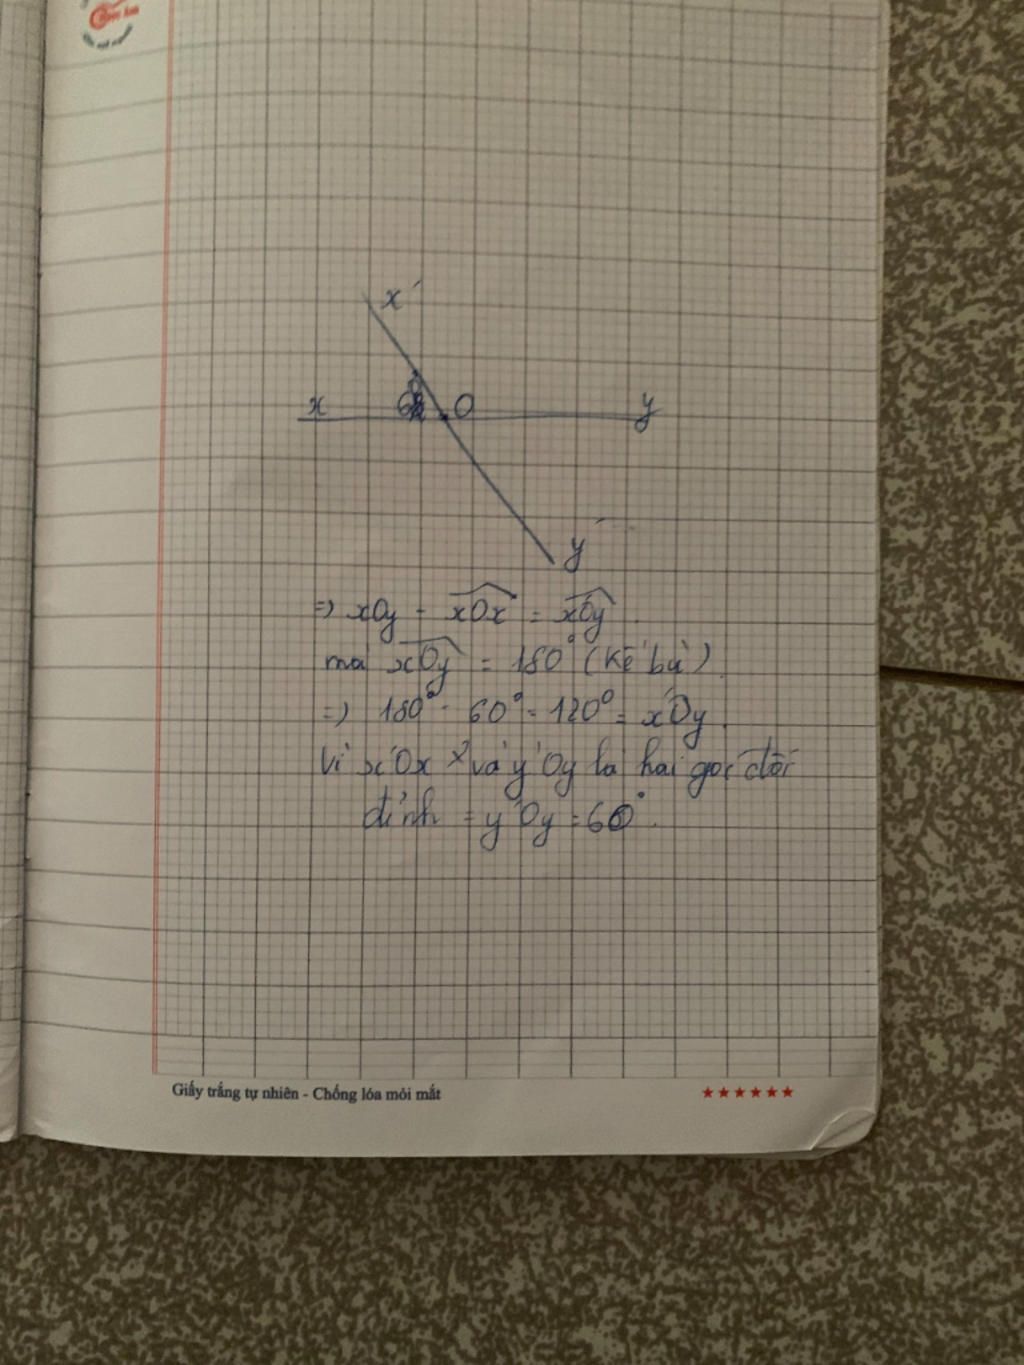 x'
x
60
O
y
y'
=) xOy - xOx' = x'Oy.
mà xOy = 180° (kề bù).
=) 180° - 60° = 120° = x'Oy.
Vì x'Ox và y'Oy là hai góc đối
đỉnh = y'Oy = 60°.
Giấy trắng tự nhiên - Chống lóa mỏi mắt